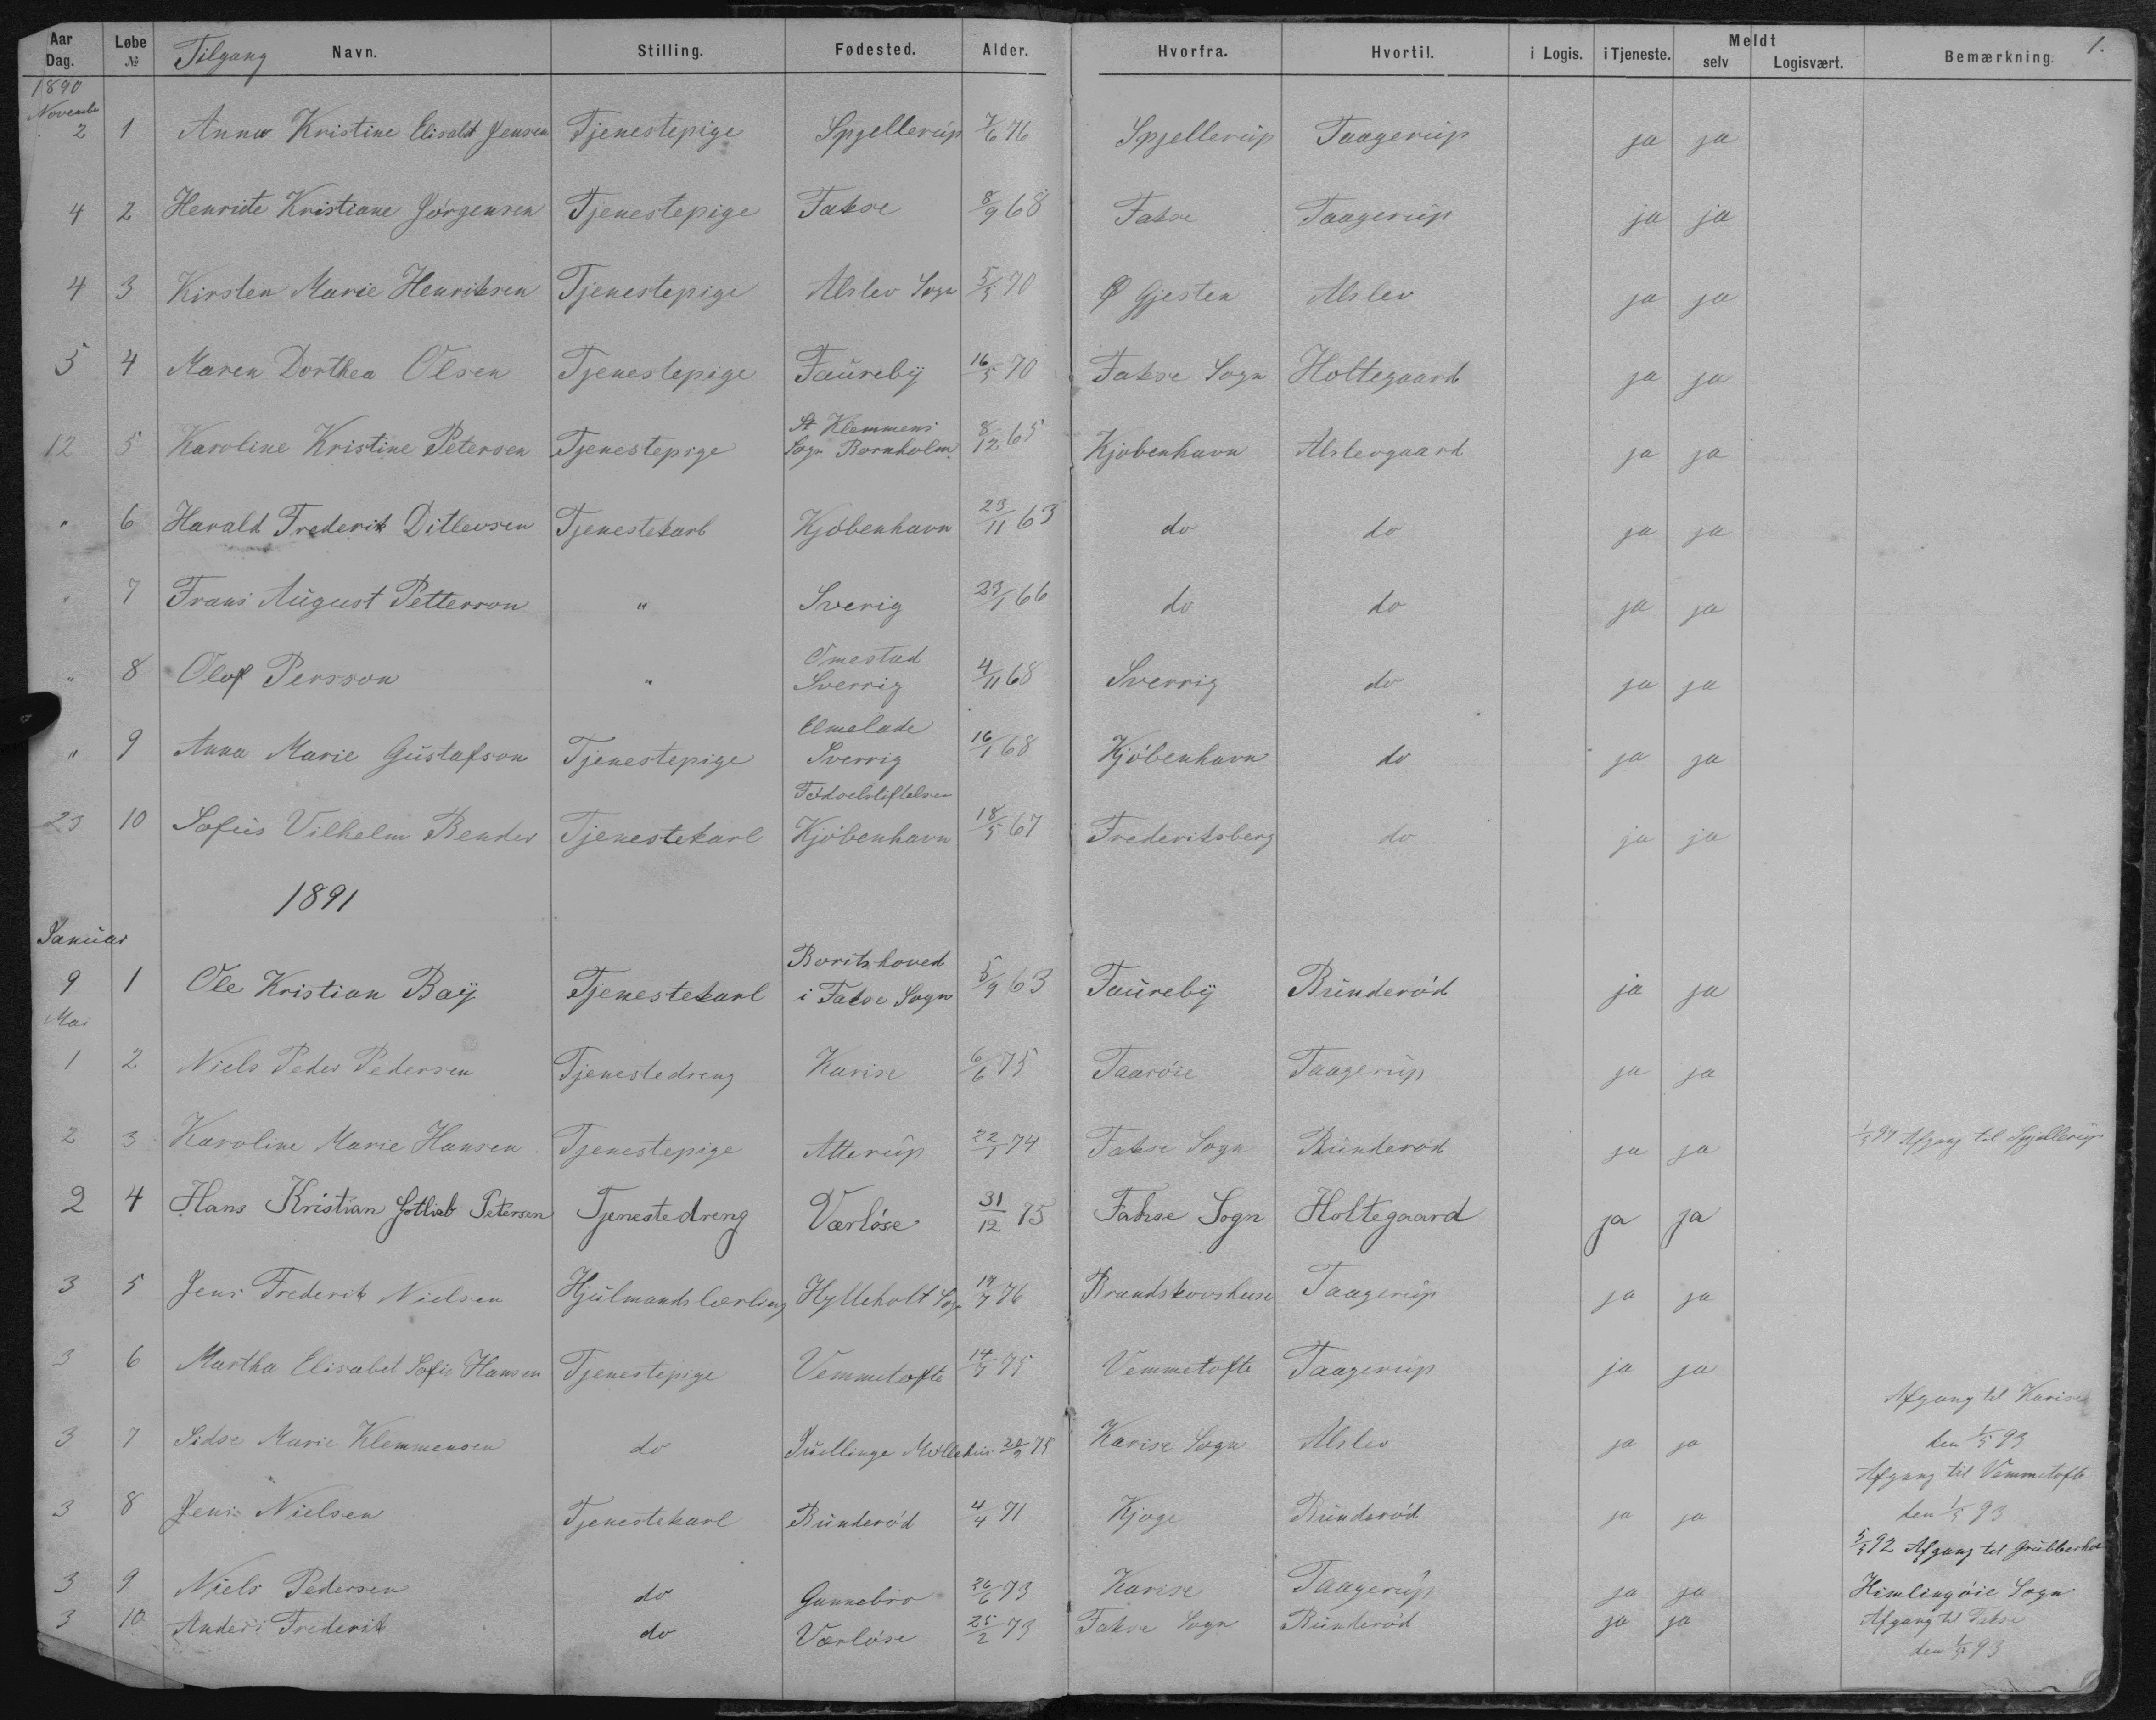 Aar Dag. Løbe № Tilgang Navn. Stilling. Fødested. Alder. Hvorfra. Hvortil. i Logis. i Tjeneste. Meldt selv Logisvært. Bemærkning. 1.
1890
Novembr
2 1 Anna Kristine Elisabt Jensen Tjenestepige Spjellerup 7/6 76 Spjellerup Taagerup ja ja
4 2 Henriete Kristiane Jørgensen Tjenestepige Fakse 8/9 68 Fakse Taagerup ja ja
4 3 Kirsten Marie Henriksen Tjenestepige Alslev Sogn 5/5 70 Ø Gjesten Alslev ja ja
5 4 Maren Dorthea Olsen Tjenestepige Faureby 16/5 70 Fakse Sogn Holtegaard ja ja
St Klemmens
12 5 Karoline Kristine Petersen Tjenestepige Sogn Bornholm. 8/12 65 Kjøbenhavn Alslevgaard ja ja
" 6 Harald Frederik Ditlevsen Tjenestekarl Kjøbenhavn 23/11 63 do do ja ja
" 7 Frans August Petterson " Sverig 23/1 66 do do ja ja
Omestad
" 8 Olof Persson " Sverrig 4/11 68 Sverrig do ja ja
Elmelade
" 9 Anna Marie Gustafson Tjenestepige Sverrig 16/1 68 Kjøbenhavn do ja ja
Fødselstiftelsen
23 10 Sofus Vilhelm Bender Tjenestekarl Kjøbenhavn 18/5 67 Frederiksberg do ja ja
1891
Januar
Boritshoved
9 1 Ole Kristian Bay Tjenestekarl i Fakse Sogn 5/9 63 Faureby Bunderød ja ja
Mai
1 2 Niels Peder Pedersen Tjenestedreng Karise 6/6 75 Taarøie Taagerup ja ja
2 3 Karoline Marie Hansen Tjenestepige Atterup 22/1 74 Fakse Sogn Bunderød ja ja Afgang til Spjellerup
2 4 Hans Kristian Gotlieb Petersen Tjenestedreng Værløse 31/12 75 Fakse Sogn Holtegaard ja ja
3 5 Jens Frederik Nielsen Hjulmandslærling Hylleholt Sogn 19/7 76 Brandskovshuse Taagerup ja ja
3 6 Martha Elisabet Sofie Hansen Tjenestepige Vemmetofte 14/7 75 Vemmetofte Taagerup ja ja
Afgang til Karise
3 7 Sidse Marie Klemmensen do Juellinge Møllehus 20/9 75 Karise Sogn Alslev ja ja den 1/5 93
Afgang til Vemmetofte
3 8 Jens Nielsen Tjenestekarl Bunderød 4/4 71 Kjøge Bunderød ja ja den 1/5 93
92 Afgang til
3 9 Niels Pedersen do Gunnebro 26/6 73 Karise Taagerup ja ja Himlingøie Sogn
3 10 Anders Frederik do Værløse 25/2 73 Fakse Sogn Bunderød ja ja Afgang til Fakse
den 93